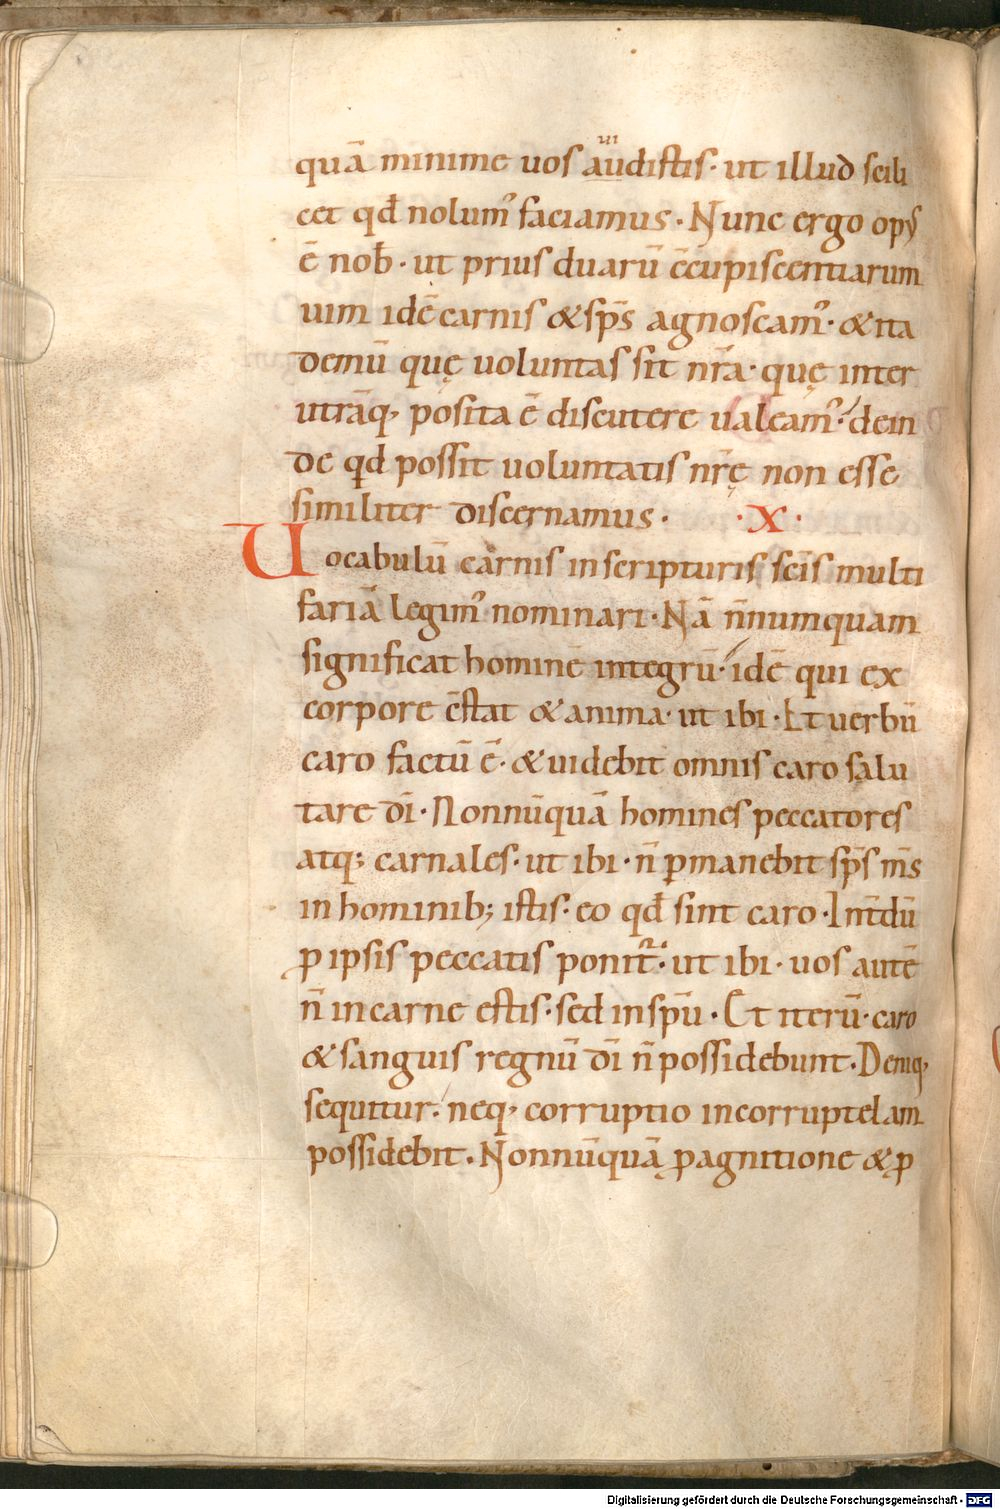 quā minime uos audistis· ut illud scili
cet qđ nolum᾽ faciamus· Nunc ergo opꝰ
ē nob̄· ut prius duarū c̄cupiscentiarum
uim idē carnis & sp̄s agnoscam᾽· & ita
demū quę uoluntas sit nr̄a· quę inter
utrāq, posita ē discutere ualeam᾽· dein
de qđ possit uoluntatis nr̄ę non esse
similiter discernamus· ·X·
Uocabulū carnis in scripturis sc̄is multi
fariā legim᾽ nominari· Nā n̄numquam
significat hominē integrū· idē qui ex
corpore c̄stat & anima· ut ibi· Et uerbū
caro factū ē· & uidebit omnis caro salu
tare dī· Nonnūquā homines peccatores
atq; carnales· ut ibi· n̄ ꝑmanebit sp̄s m̄s
in hominib; istis· eo qđ sint caro· Int̄dū
ꝓ ipsis peccatis ponit᷒· ut ibi· uos autē
n̄ in carne estis· sed in sp̄u· Et iterū· caro
& sanguis regnū dī n̄ possidebunt· Deniq,
sequitur· neq, corruptio incorruptelam
possidebit· Nonnūquā ꝓ agnitione & ꝓ
Digitalisierung gefördert durch die Deutsche Forschungsgemeinschaft - DFG